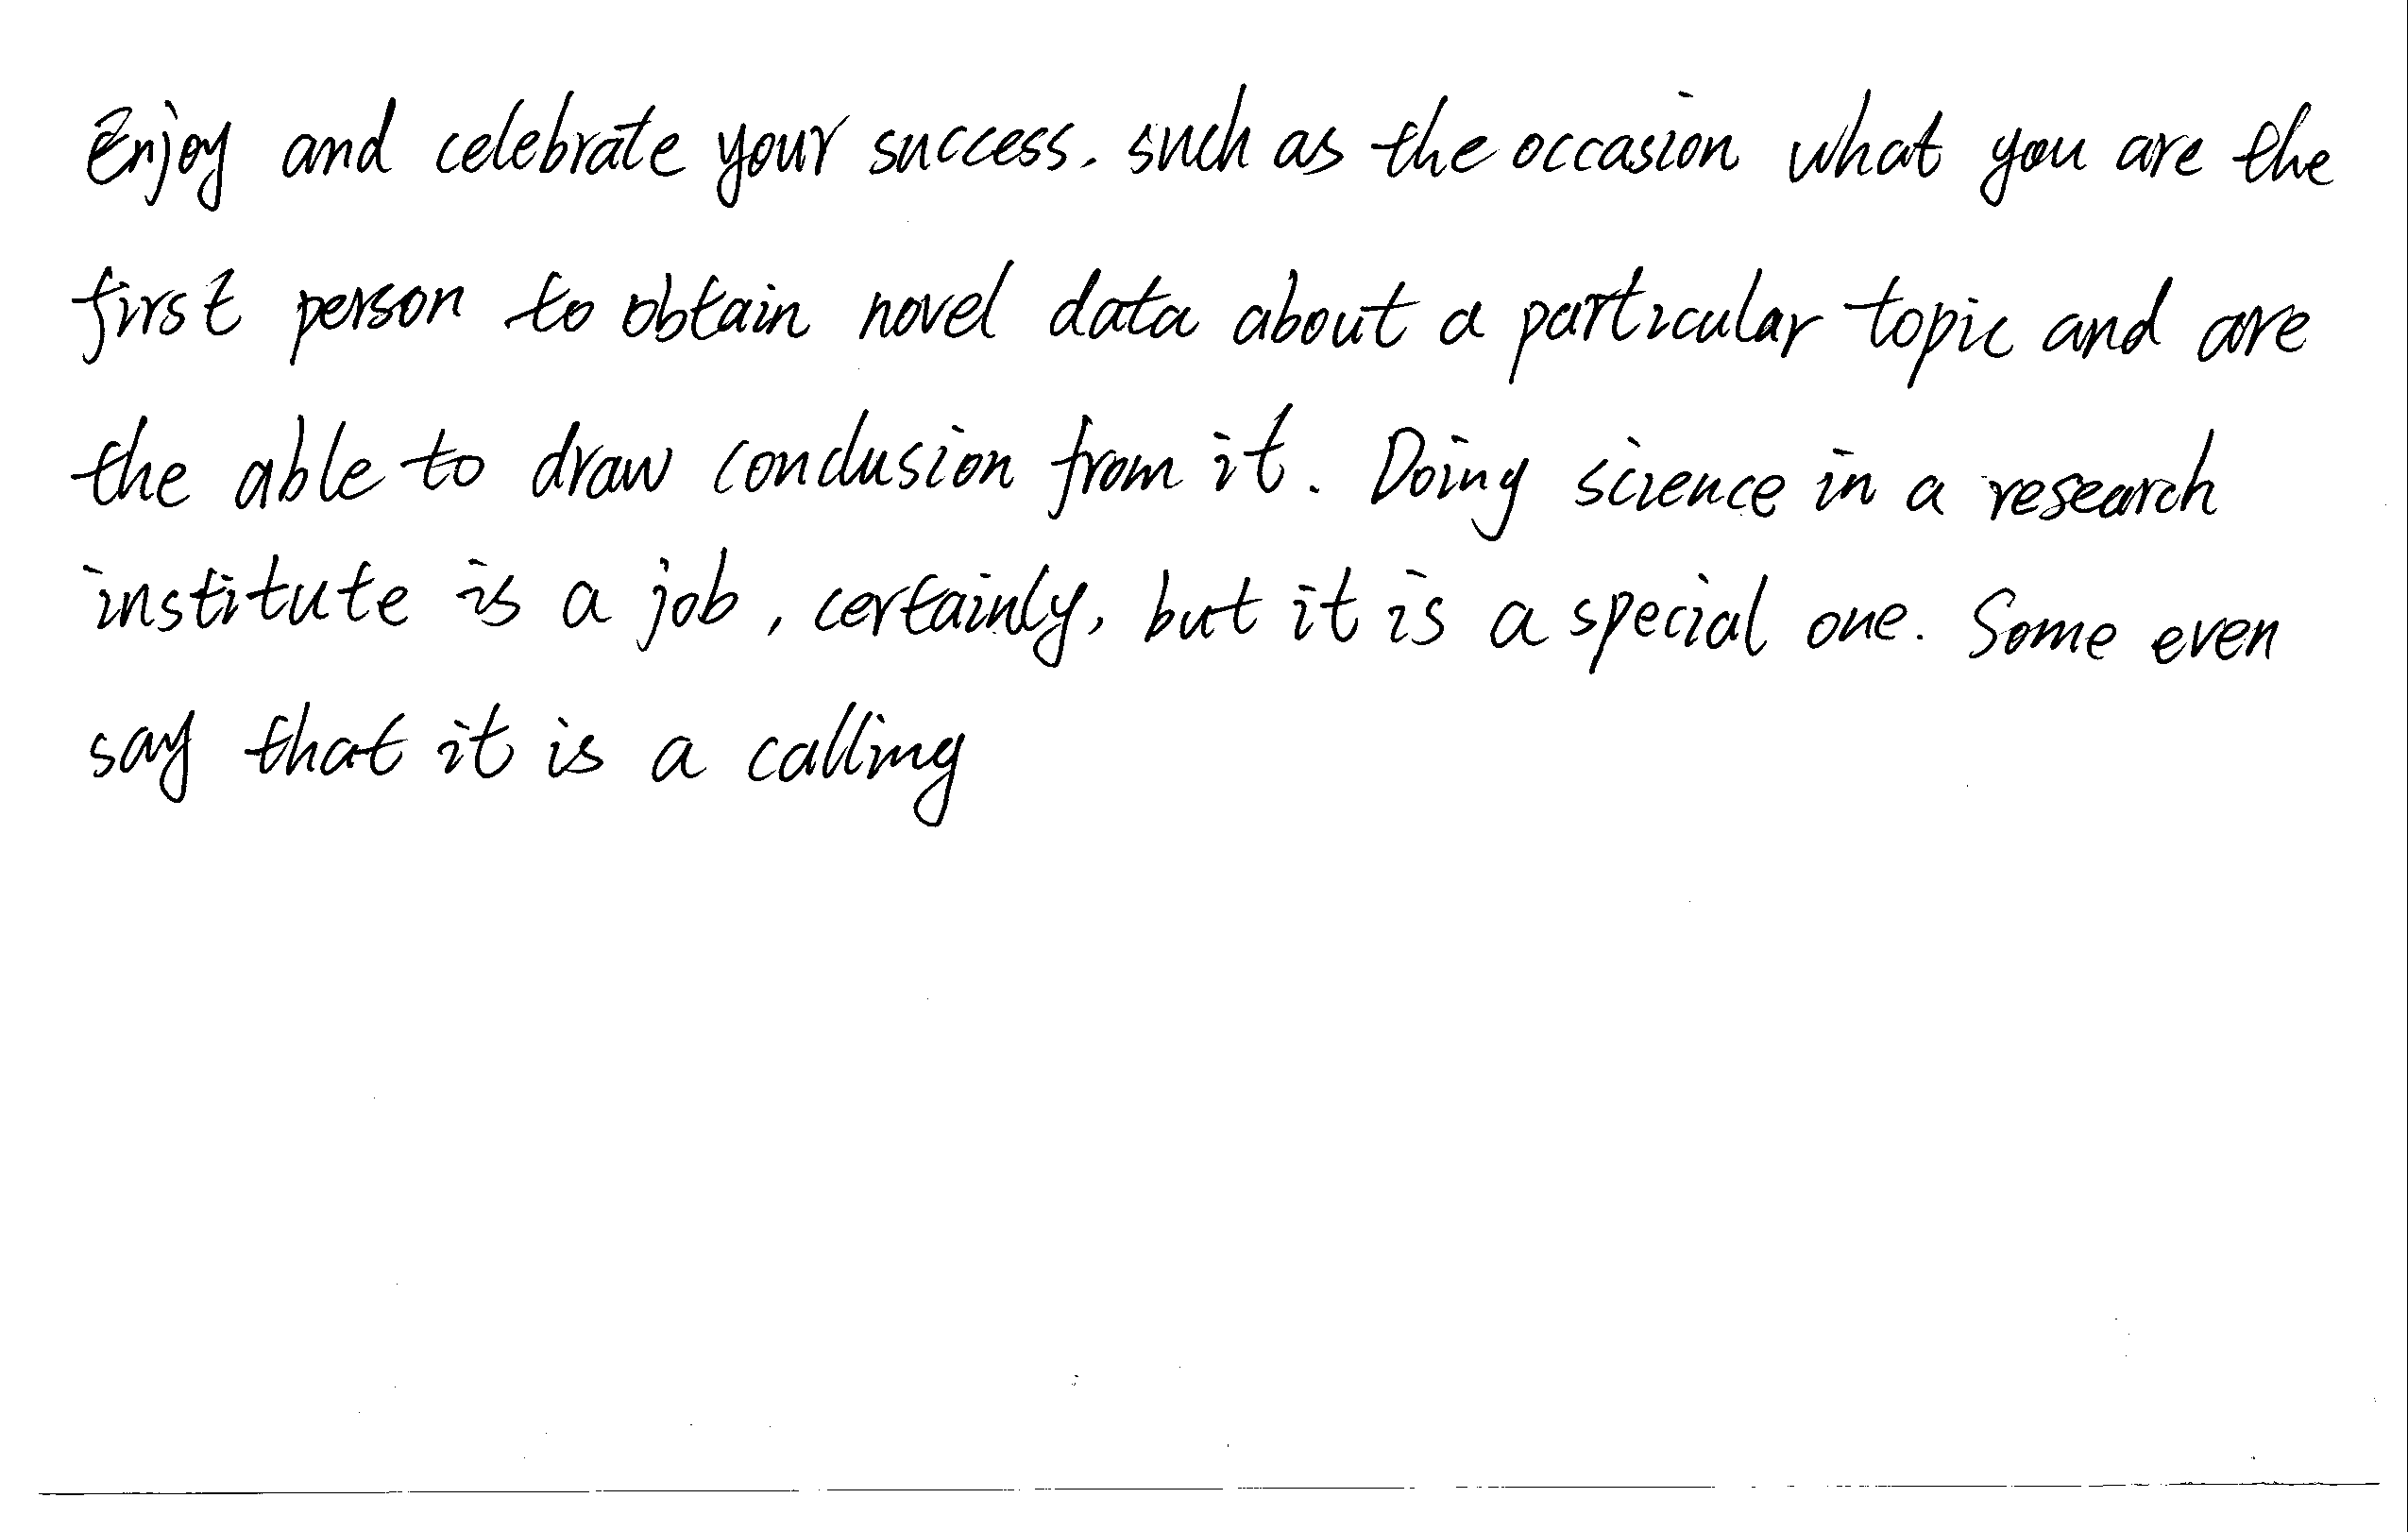 Enjoy and celebrate your success, such as the occasion what you are the
first person to obtain novel data about a particular topic and are
the able to draw conclusion from it. Doing science in a research
institute is a job, certainly, but it is a special one. Some even
say that it is a calling